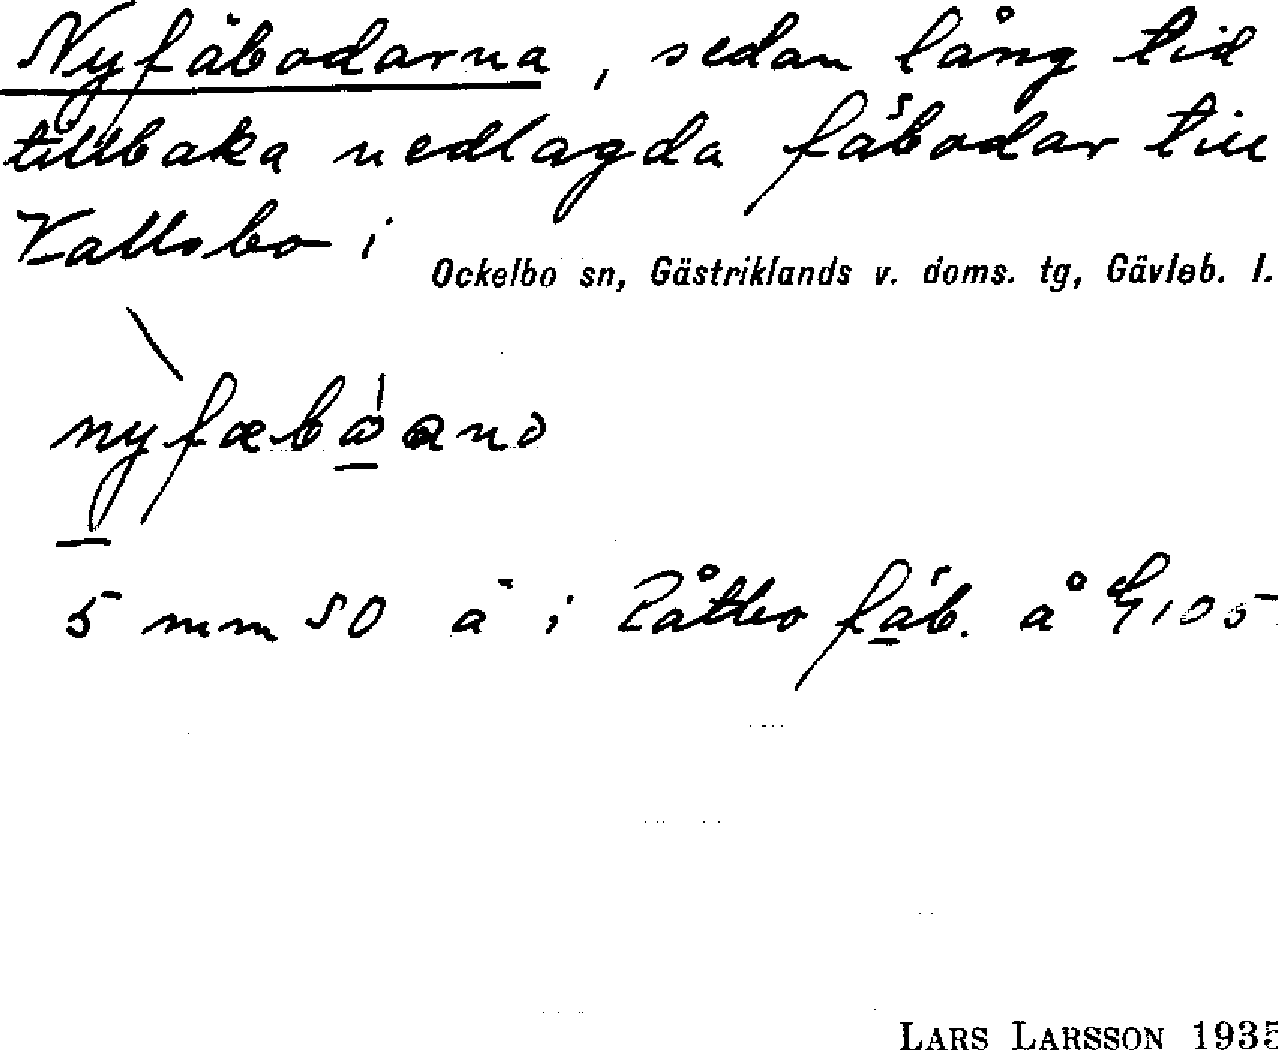 Nyfäbodarna, sedan lång tid
tillbaka nedlagda fäbodar till
Kallsbo i
Ockelbo sn, Gästriklands v. doms. tg, Gävleb. l.
5 mm SO ä i Råtbo fäb. å G105
LARS LARSSON 1935